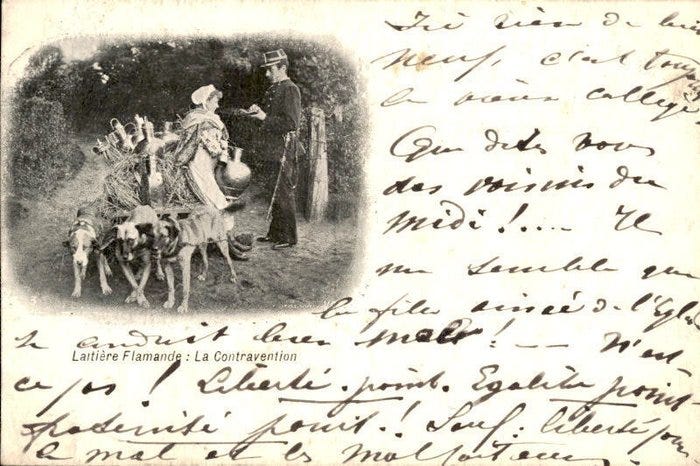 Ici rien de bien
neuf, c'est toujours
le vieux collège
Que dites vous
des voisins du
midi !.... Il
me semble que
la fille ainée de l'Eglise
se conduit bien mal ! — N'est
ce pas ! Liberté point. Egalité point
fraternité point ! Sauf : liberté pour
le mal et les malfaiteurs
Laitière Flamande : La Contravention